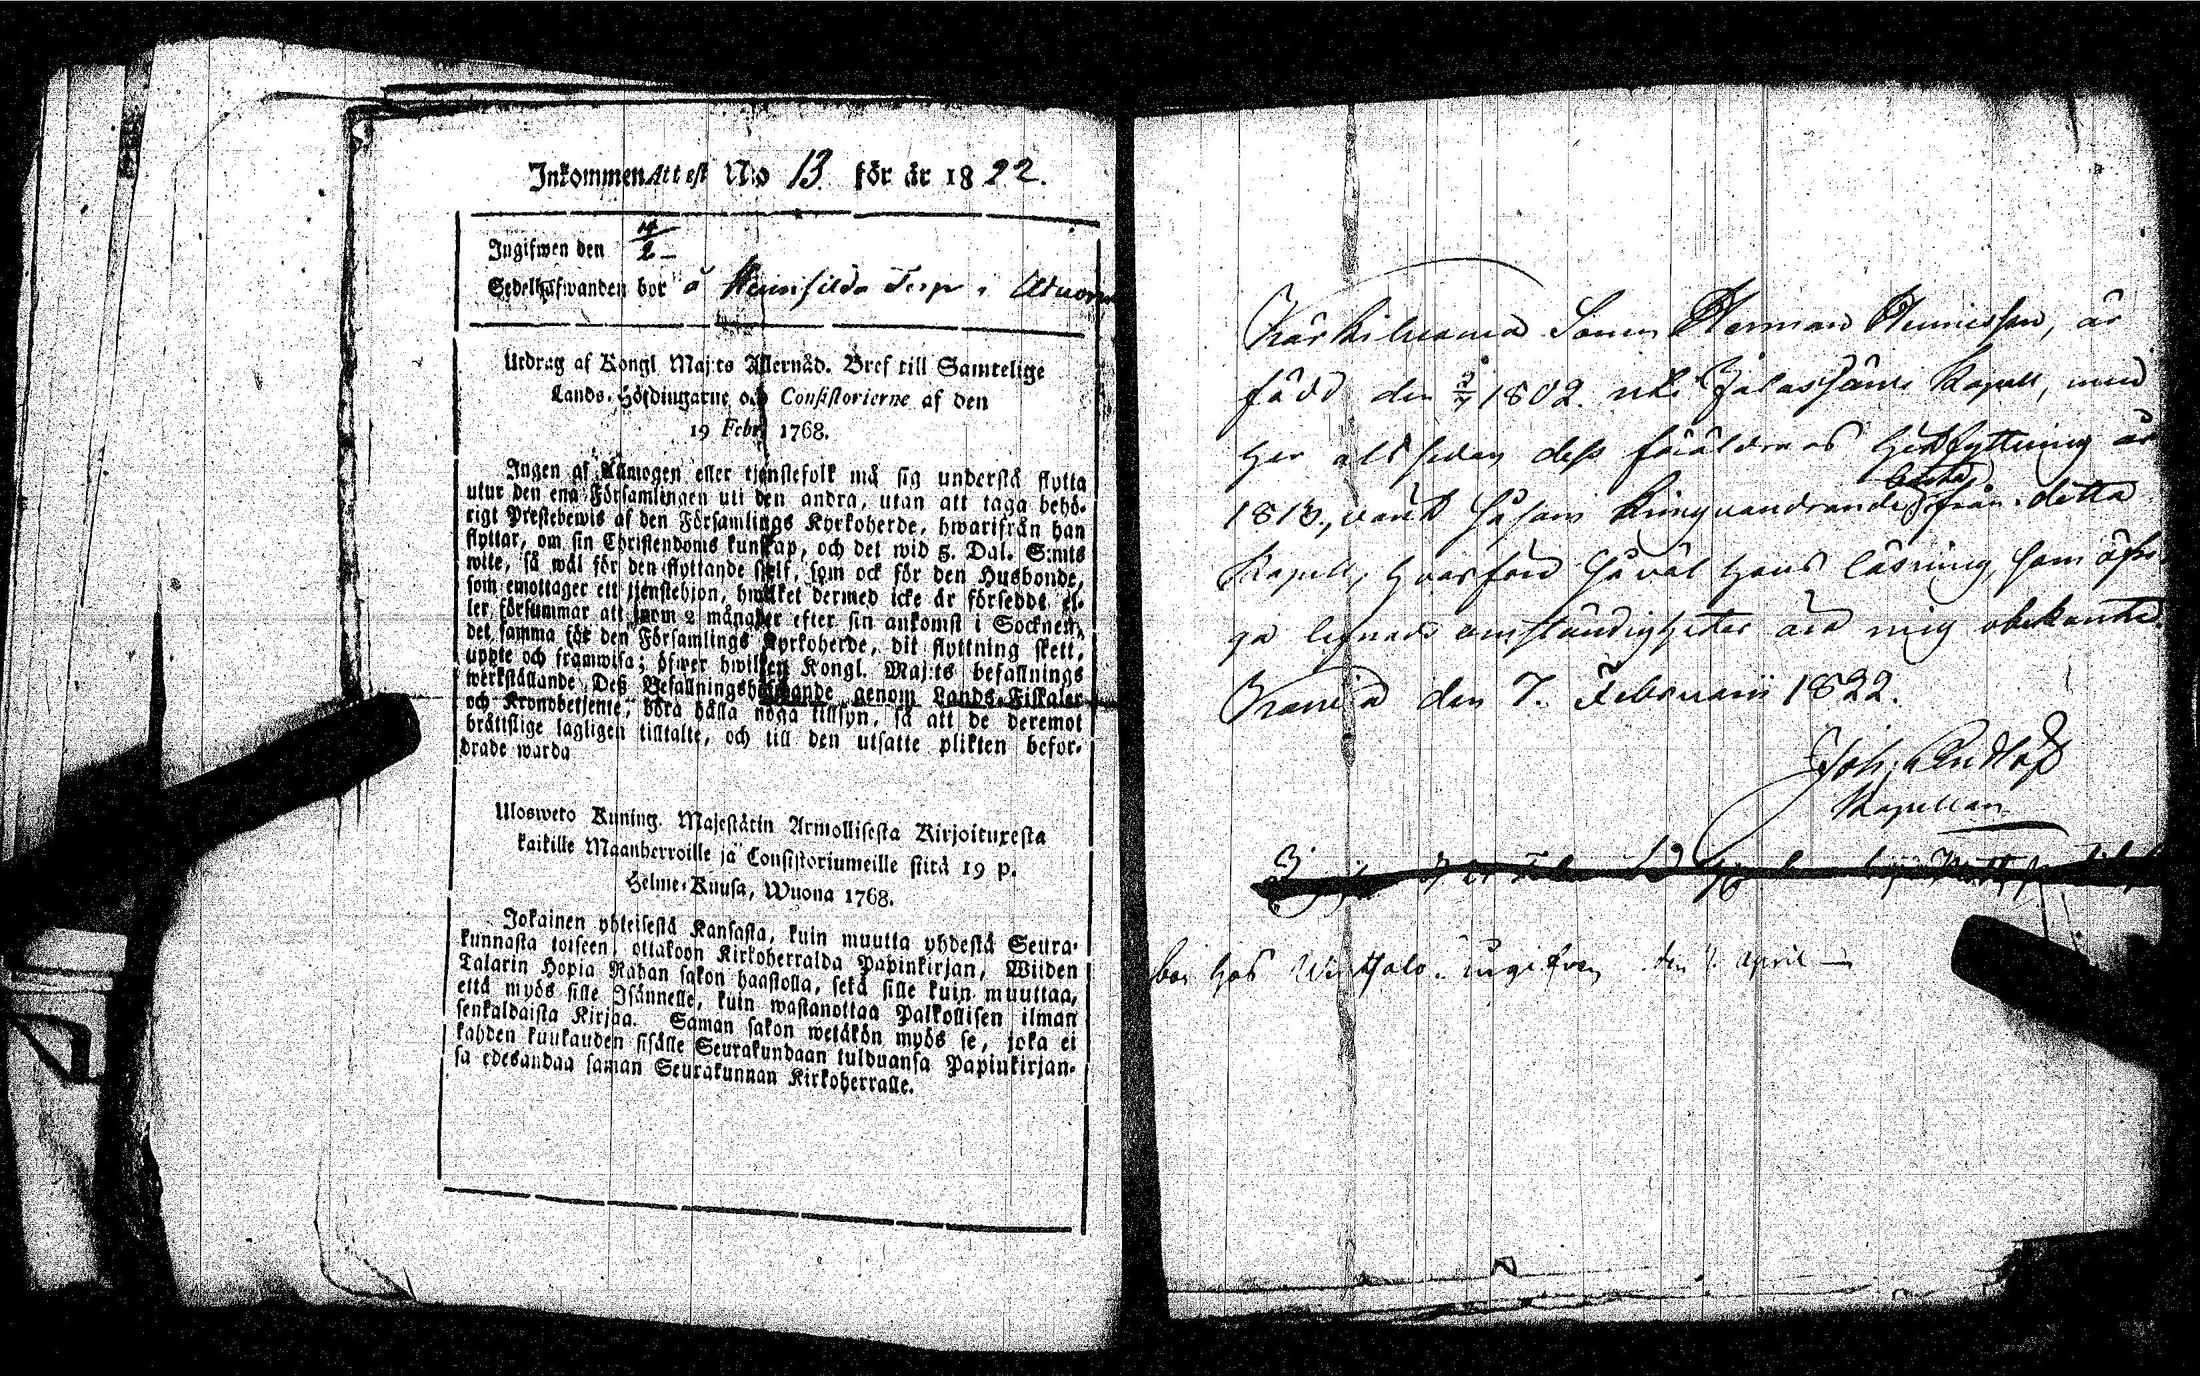 Inkommen Attest No 13 för år 1822.
Ingifwen den 14/2
Sedelhafwanden bor å Torp i
Utdrag af Kongl Maj:ts Allernåd. Bref till Samtelige
Lands-Höfdingarne och Consistorierne af den
19 Febr. 1768.
Ingen af Allmogen eller tjenstefolk må sig understå flytta
utur den ena Församlingen uti den andra, utan att taga behö-
rigt Prestebewis af den Församlings Kyrkoherde, hwarifrån han
flyttar, om sin Christendoms kunskap, och det wid 5. Dal. S:mts
wite, så wäl för den flyttande sjelf, som ock för den Husbonde,
som emottager ett tjenstehjon, hwilket dermed icke är försedde el-
ler försummar att inom 2 månader efter sin ankomst i Socknen,
det samma för den Församlings Kyrkoherde, dit flyttning skett,
uppte och framwisa; öfwer hwilken Kongl. Maj:ts befallnings
werkställande Deß Befallningshafwande genom Lands-Fiskaler
och Kronobetjente, böra hålla noga tillsyn, så att de deremot
brättslige lagligen tilltalte, och till den utsatte plikten befor-
drade warda
Ulosweto Kuning. Majestätin Armollisesta Kirjoituxesta
kaikille Maanherroille ja Consistoriumeille siitä 19 p.
Helme-Kuusa, Wuona 1768.
Jokainen yhteisestä Kansasta, kuin muutta yhdestä Seura-
kunnasta toiseen, ottakoon Kirkoherralda Papinkirjan, Wiiden
Talarin Hopia Rahan sakon haastolla, sekä sille kuin muuttaa,
että myös sille Isännelle, kuin wastanottaa Palkollisen ilman
senkaldaista Kirjaa. Saman sakon wetäkön myös se, joka ei
kahden kuukauden sisälle Seurakundaan tulduansa Papinkirjan-
sa edesandaa saman Seurakunnan Kirkoherralle.
Sonen Herman Henriksson, är
född den 2/7 1802. uti Jalasjärvi Kapell, men
har alt sedan dess föräldrars hitflyttning år
1813, varit såsom kringvandrande borta från detta
Kapell, hvarföre såväl hans läsning, som öfri-
ga lefnads omständigheter äro mig obekante.
den 7. Februarii 1822.
Joh:
Kapellan
bor hos ingifven den 1. April